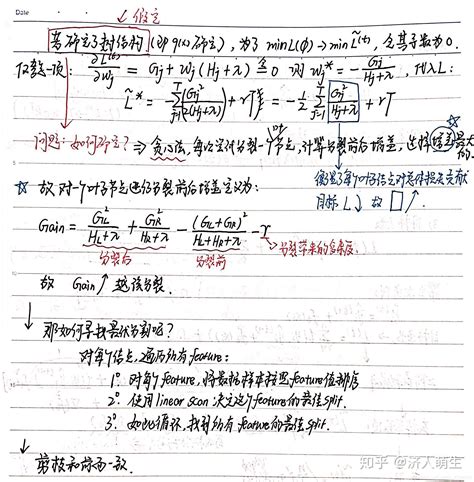 Date
↙ 假定
若确定了树结构(即q(x)确定),为了 min L(φ)→min L̃^(t),令其导数为0.
仅鼓一项: ∂L̃^(t)/∂wj = Gj + wj(Hj+λ) ≜ 0 则 wj* = - Gj/(Hj+λ),代入L:
L̃* = -
+ rT = - 1/2 Σ_{j=1}^{T} Gj²/(Hj+λ) + rT
问题:如何确定? ⇒ 贪心法,每次尝试分裂一个节点,计算分裂前后增益,选择增益最大的.
衡量了每个叶子结点对总体损失贡献
目标 L↓ 故 □↗
☆ 故对一个叶子节点进行分裂前后增益定义为:
Gain = GL²/(HL+λ) + GR²/(HR+λ) - (GL+GR)²/(HL+HR+λ) - r
分裂后 分裂前 分裂带来的复杂度.
故 Gain↗ 越该分裂.
↓ 那如何寻找最优分割呢?
对每个结点,遍历所有feature:
1° 对每个feature,将数据样本按照feature值排序
2° 使用linear scan 决定这个feature的最佳split.
3° 如此循环,找到所有feature的最佳split.
↓
剪枝和前面一致.
知乎 @济人萌生